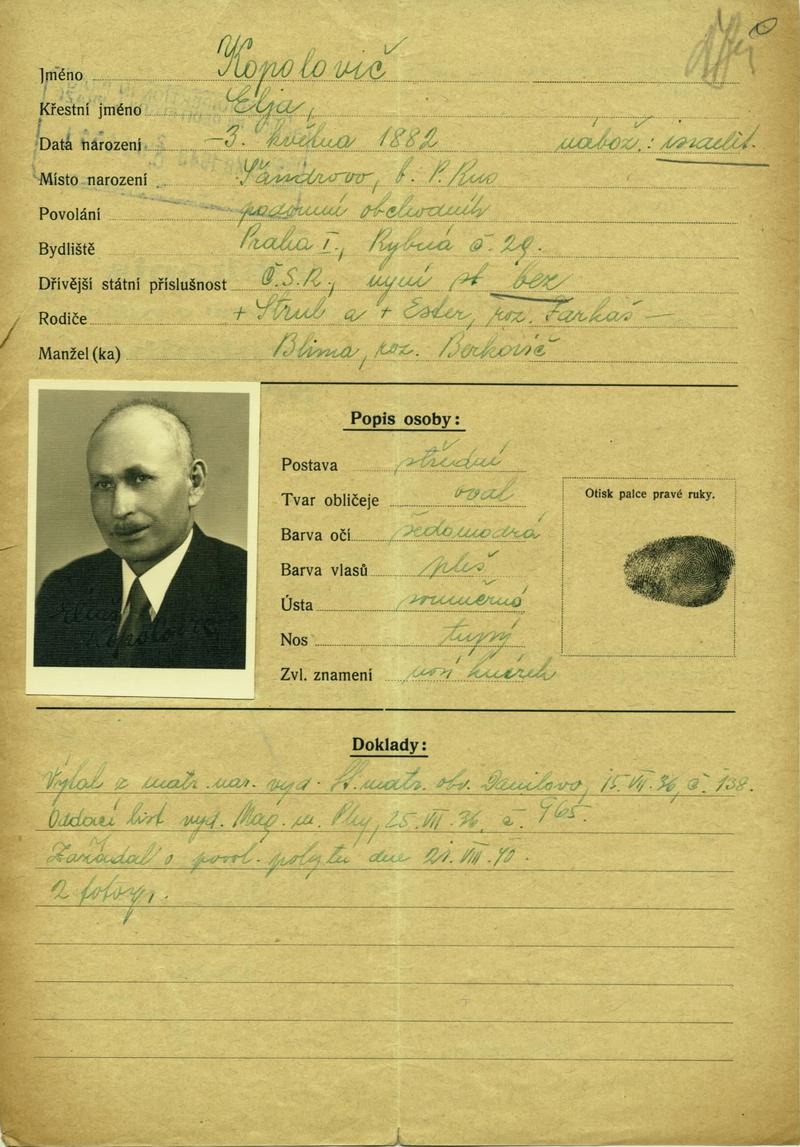 Jméno Kopolovič
Křestní jméno Elja,
Datá narození -3. května 1882 nábož.: israelit.
Místo narození Šandrovo, b. P. Rus
Povolání podomní obchodník
Bydliště Praha I., Rybná č. 29.
Dřívější státní příslušnost Č.S.R., nyní st bez
Rodiče + Strul a + Ester, roz. Farkaš —
Manžel(ka) Blima, roz. Berkovič
Popis osoby:
Postava střední
Tvar obličeje oval
Barva očí šedomodrá
Barva vlasů pleš
Ústa souměrná
Nos tupý
Zvl. znamení nosí knírek
Otisk palce pravé ruky.
Kopolovič
Doklady:
Výtah z matr. nar. vyd. St. matr. obv. Danilovo, 15. VII. 36, č. 138.
Oddací list vyd. Mag. m. Phy, 25. VII. 36, č. 965.
Zažádal o povol. pobytu dne 21. VIII. 40.
2 fotogr.